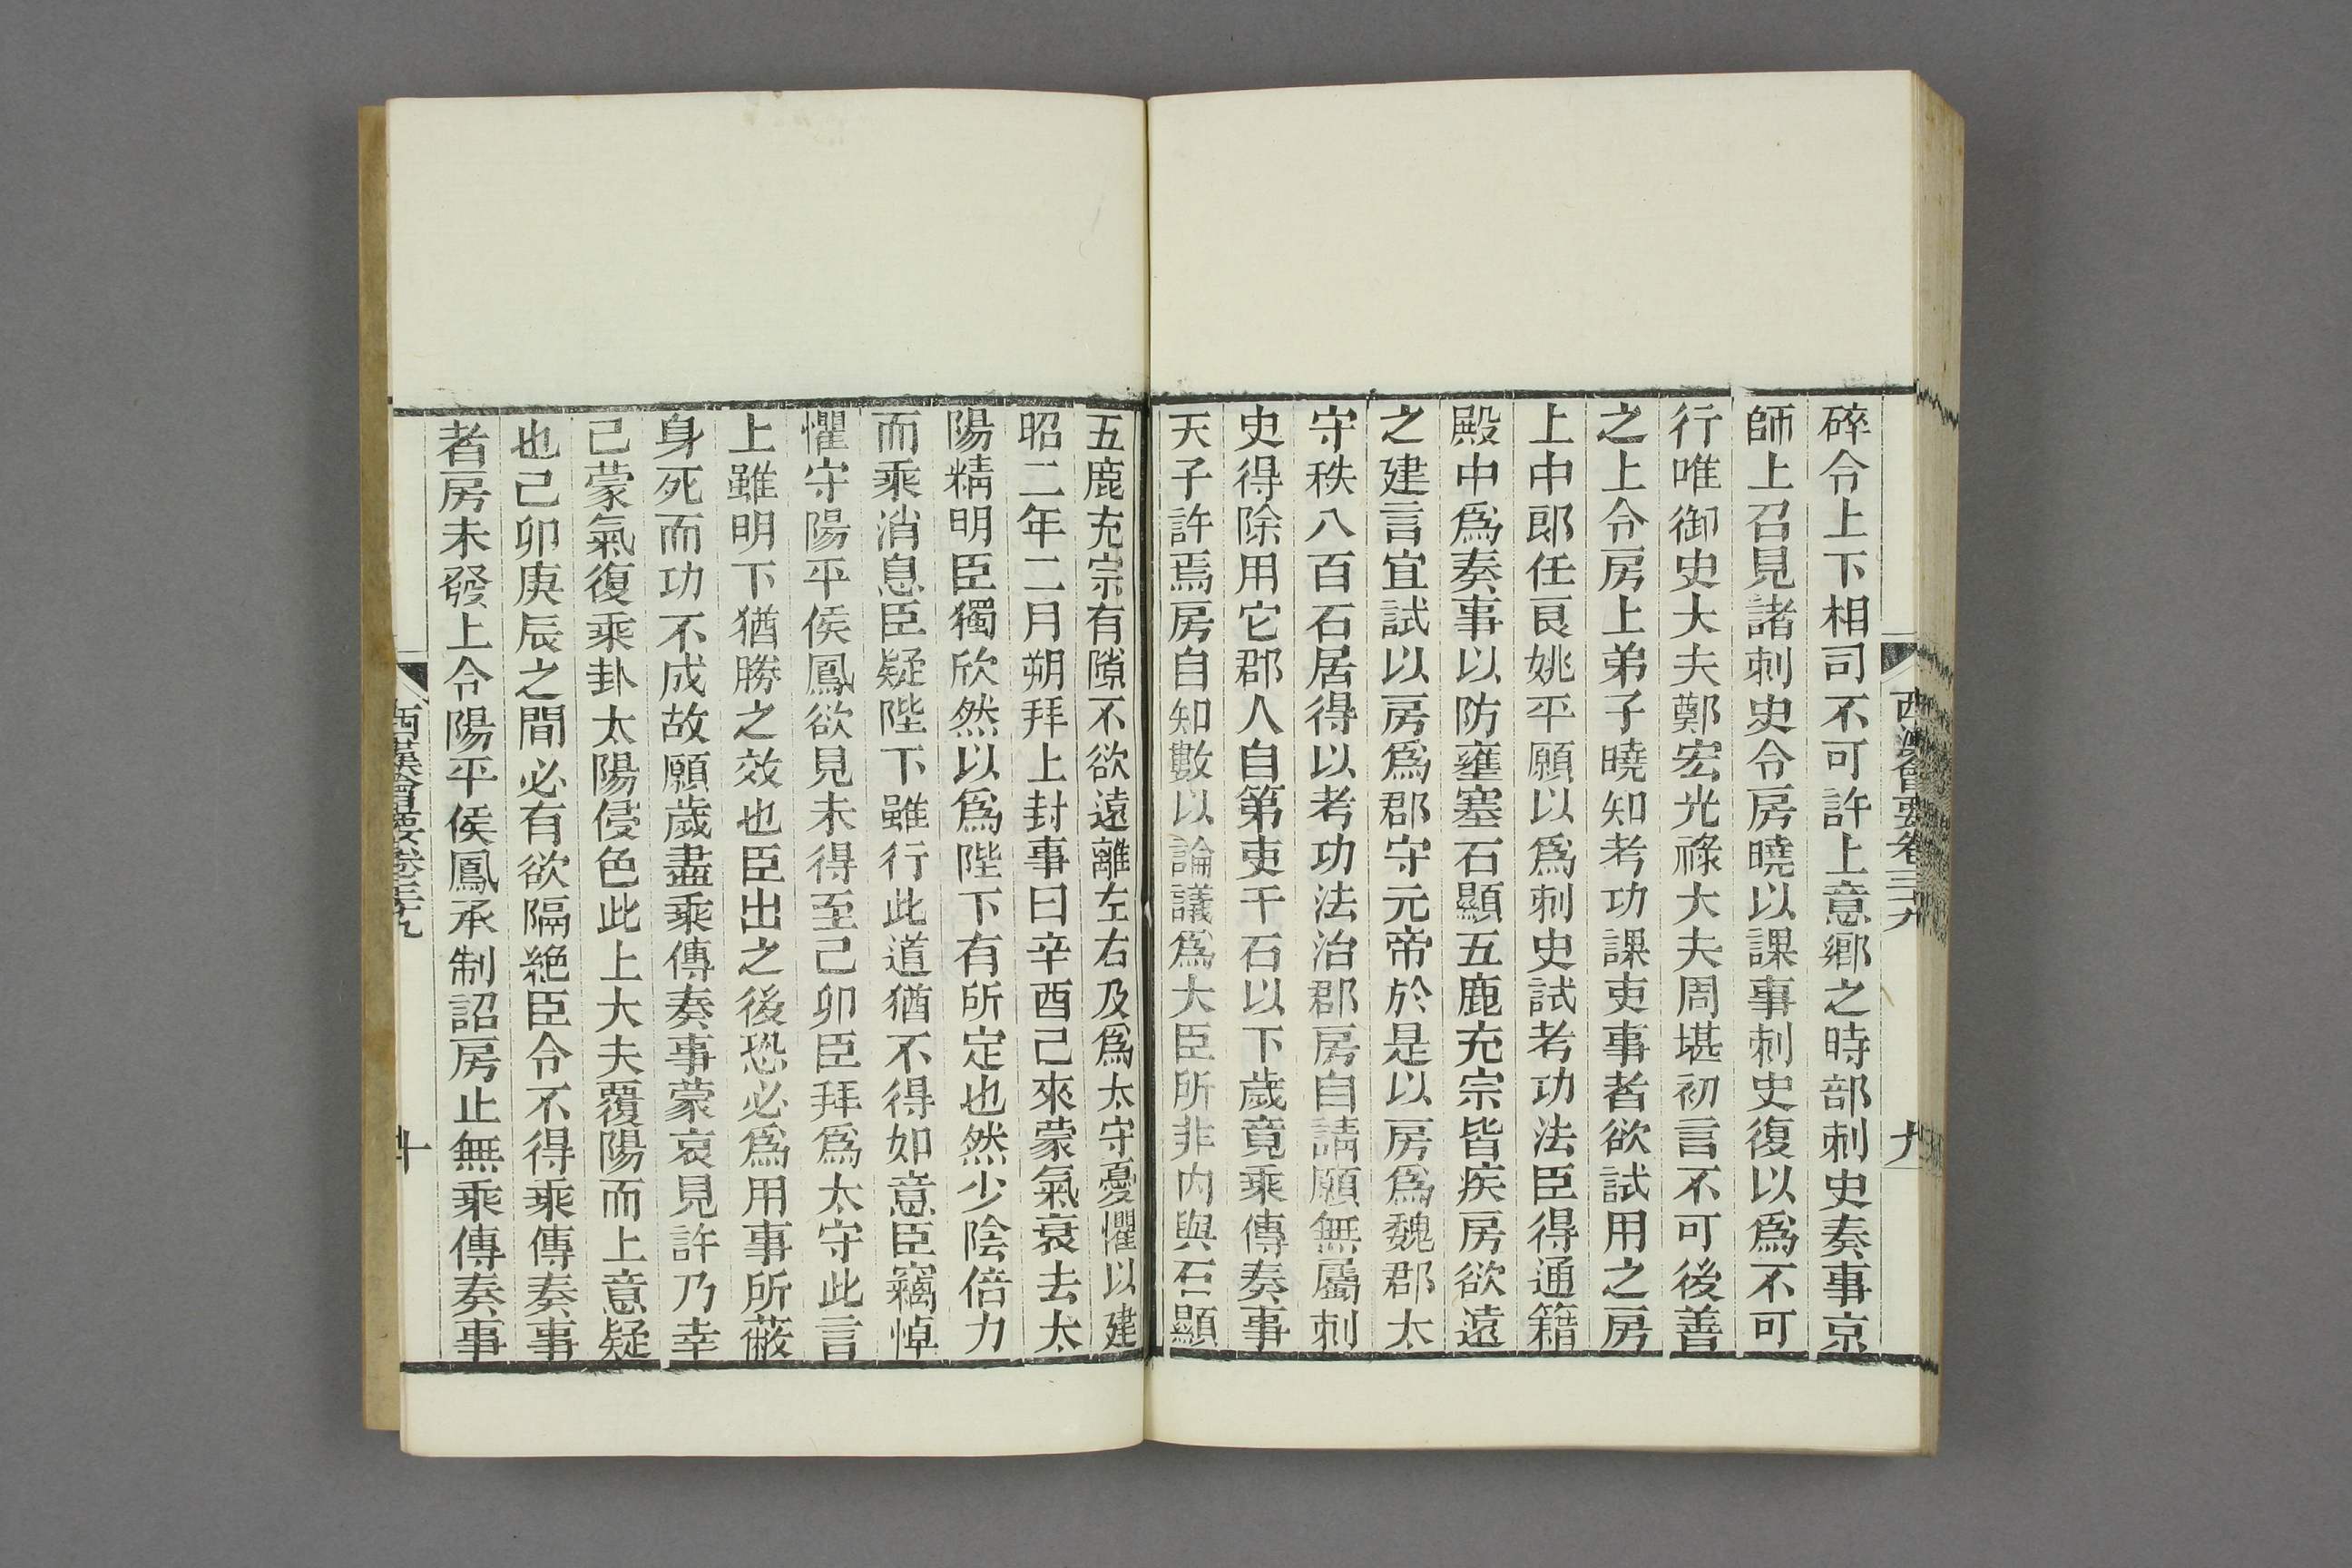 西漢會要卷三十九
九
碎令上下相司不可許上意鄉之時部刺史奏事京
師上召見諸刺史令房曉以課事刺史復以爲不可
行唯御史大夫鄭宏光祿大夫周堪初言不可後善
之上令房上弟子曉知考功課吏事者欲試用之房
上中郎任良姚平願以爲刺史試考功法臣得通籍
殿中爲奏事以防壅塞石顯五鹿充宗皆疾房欲遠
之建言宜試以房爲郡守元帝於是以房爲魏郡太
守秩八百石居得以考功法治郡房自請願無屬刺
史得除用它郡人自第吏千石以下歲竟乘傳奏事
天子許焉房自知數以論議爲大臣所非內與石顯
五鹿充宗有隙不欲遠離左右及爲太守憂懼以建
昭二年二月朔拜上封事曰辛酉己來蒙氣衰去太
陽精明臣獨欣然以爲陛下有所定也然少陰倍力
而乘消息臣疑陛下雖行此道猶不得如意臣竊悼
懼守陽平侯鳳欲見未得至己卯臣拜爲太守此言
上雖明下猶勝之效也臣出之後恐必爲用事所蔽
身死而功不成故願歲盡乘傳奏事蒙哀見許乃幸
己蒙氣復乘卦太陽侵色此上大夫覆陽而上意疑
也己卯庚辰之間必有欲隔絕臣令不得乘傳奏事
者房未發上令陽平侯鳳承制詔房止無乘傳奏事
西漢會要卷三十九
十